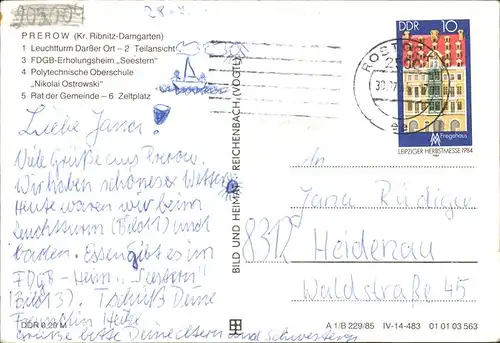 903009
28.7.
PREROW (Kr. Ribnitz-Damgarten)
1 Leuchtturm Darßer Ort – 2 Teilansicht
3 FDGB-Erholungsheim „Seestern"
4 Polytechnische Oberschule
„Nikolai Ostrowski"
5 Rat der Gemeinde – 6 Zeltplatz
Liebe Jana!
Viele Grüße aus Prerow.
Wir haben schönes Wetter.
Heute waren wir beim
Leuchtturm (Bild 1) und
baden. Essen gibt es im
FDGB-Heim „Seestern"
(Bild 3). Tschüß Deine
Freundin Heike
Grüße bitte Deine Eltern und Schwestern
DDR 0,20 M
BILD UND HEIMAT REICHENBACH (VOGTL)
ROSTOCK
DDR 10
Fregehaus
LEIPZIGER HERBSTMESSE 1984
An
Jana Rüdiger
8312 Heidenau
Waldstraße 45
A 1/B 229/85 IV-14-483 01 01 03 563